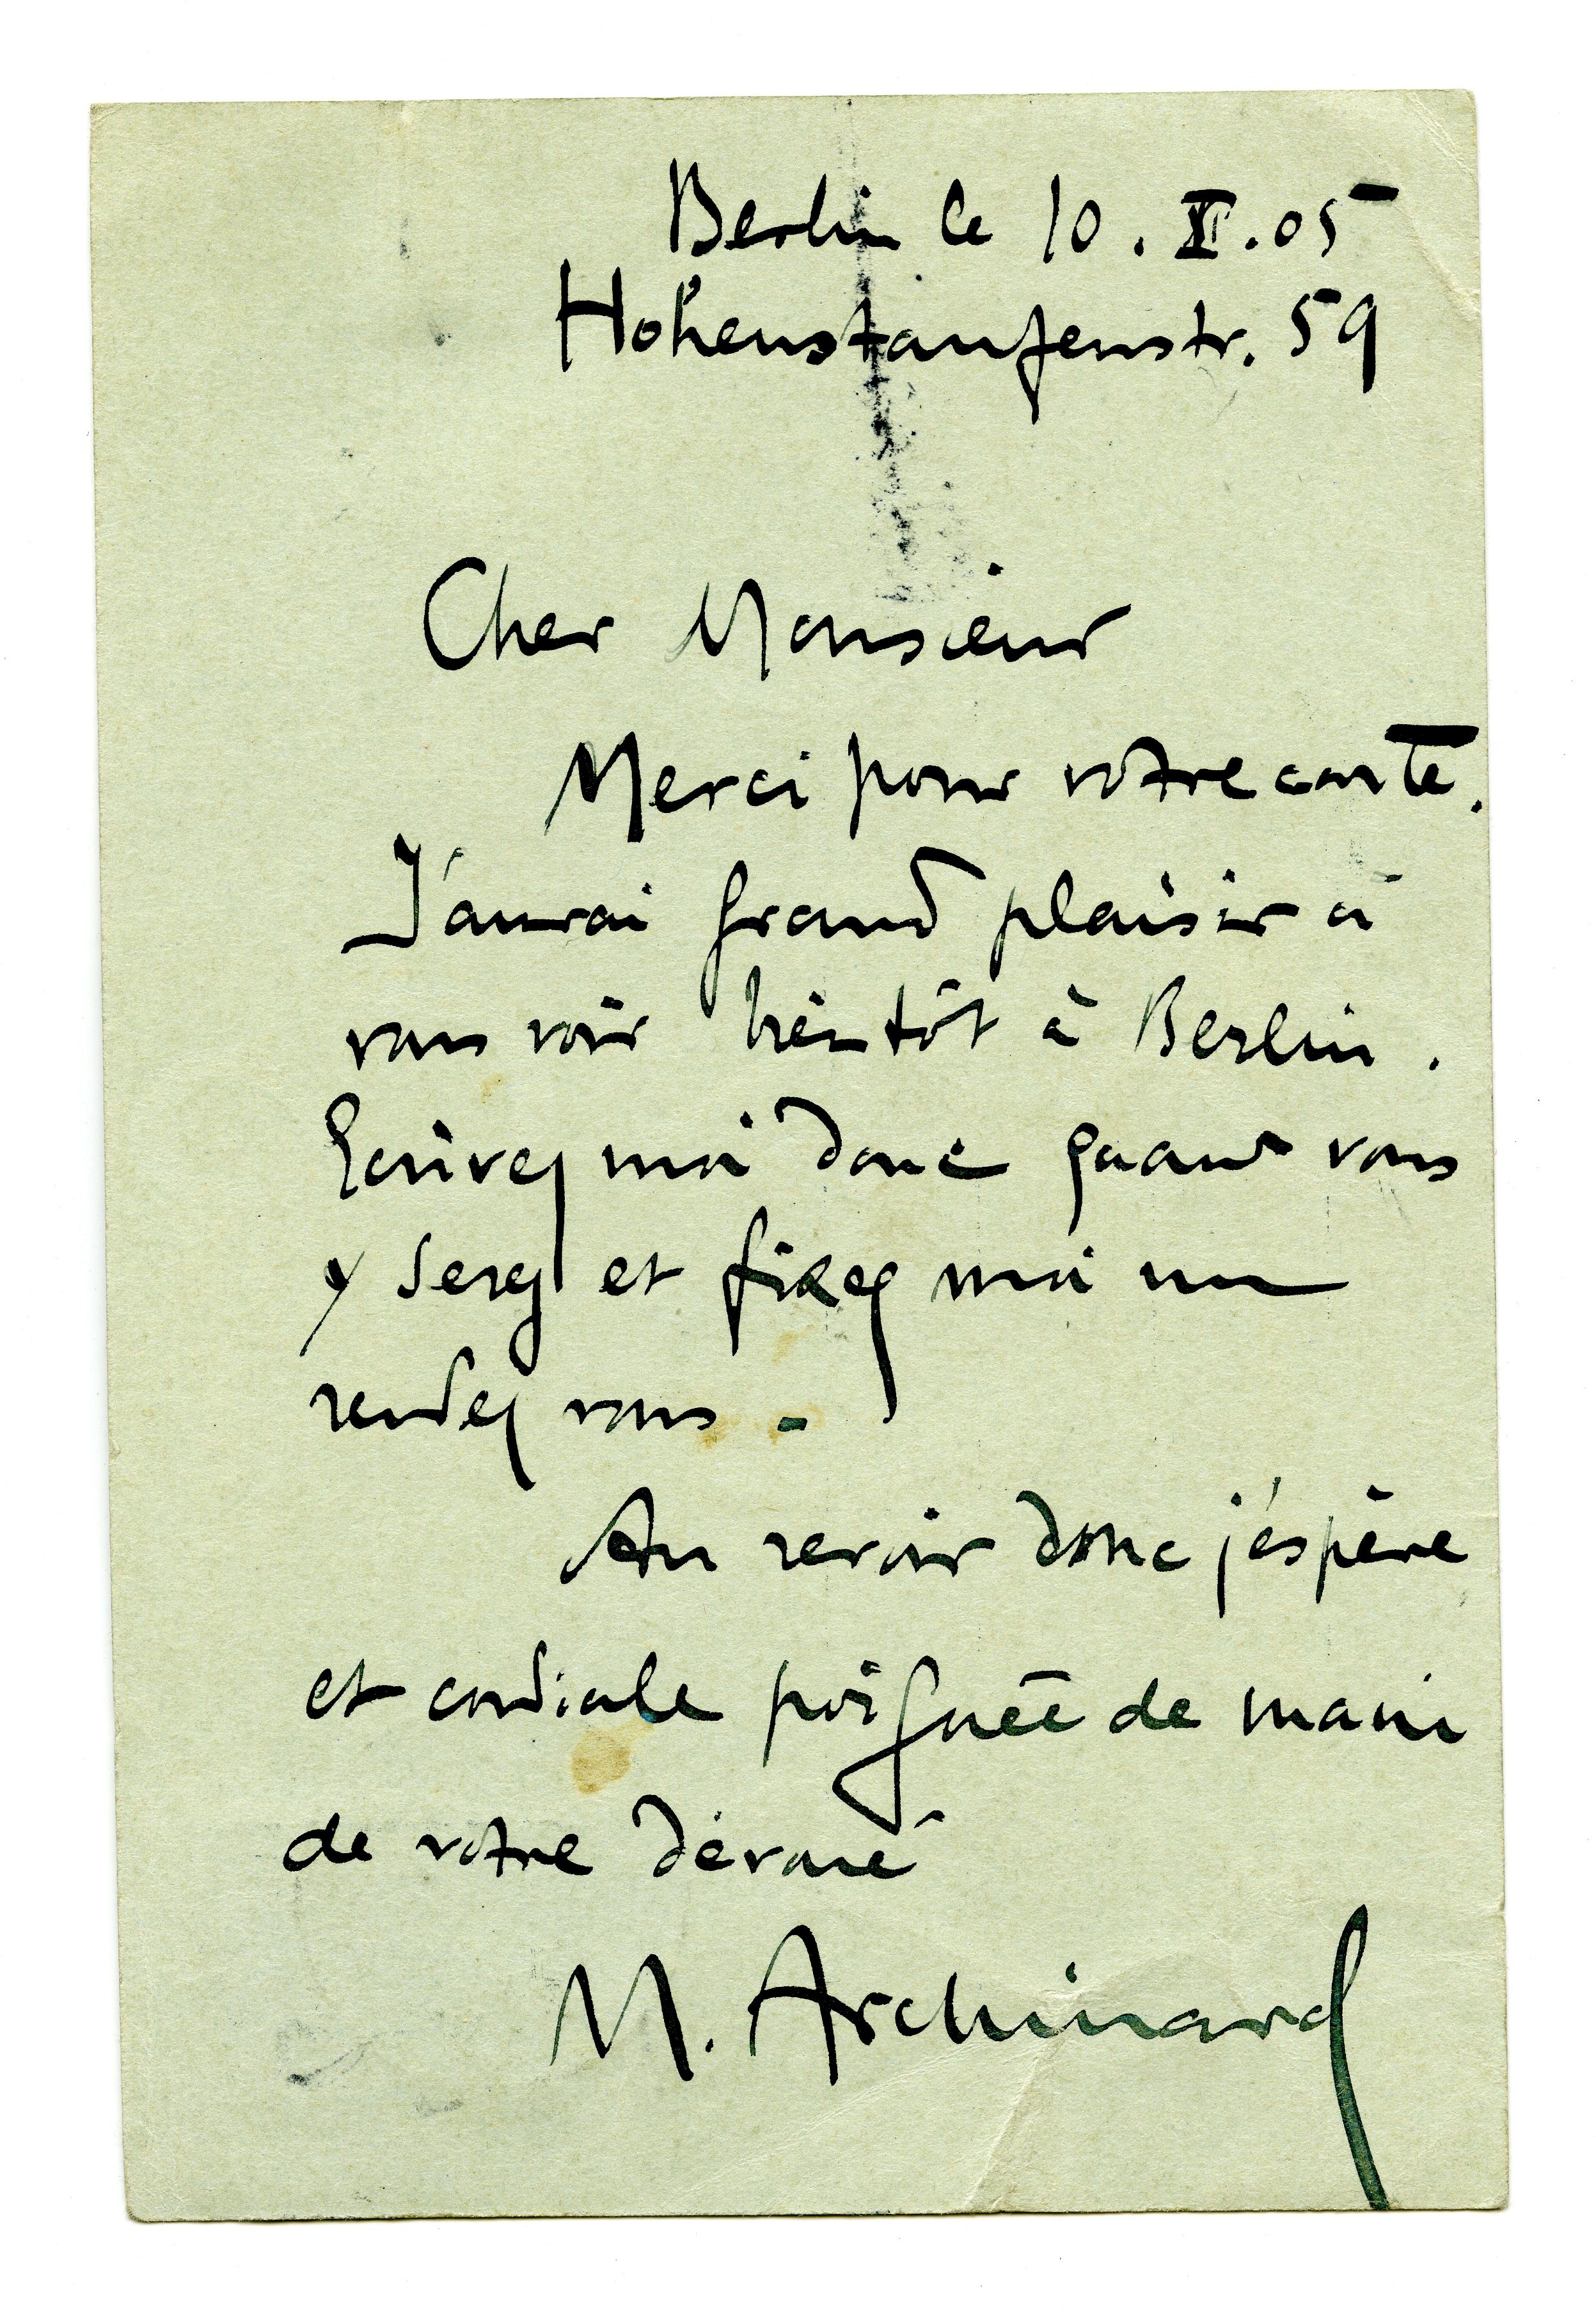 Berlin le 10. XI. 05
Hohenstaufenstr. 59
Cher Monsieur
Merci pour votre carte.
J'aurai grand plaisir à
vous voir bientôt à Berlin.
Ecrivez moi donc quand vous
y serez et fixez moi un
rendez vous.
Au revoir donc j'éspère
et cordiale poignée de main
de votre dévoué
M. Archinard